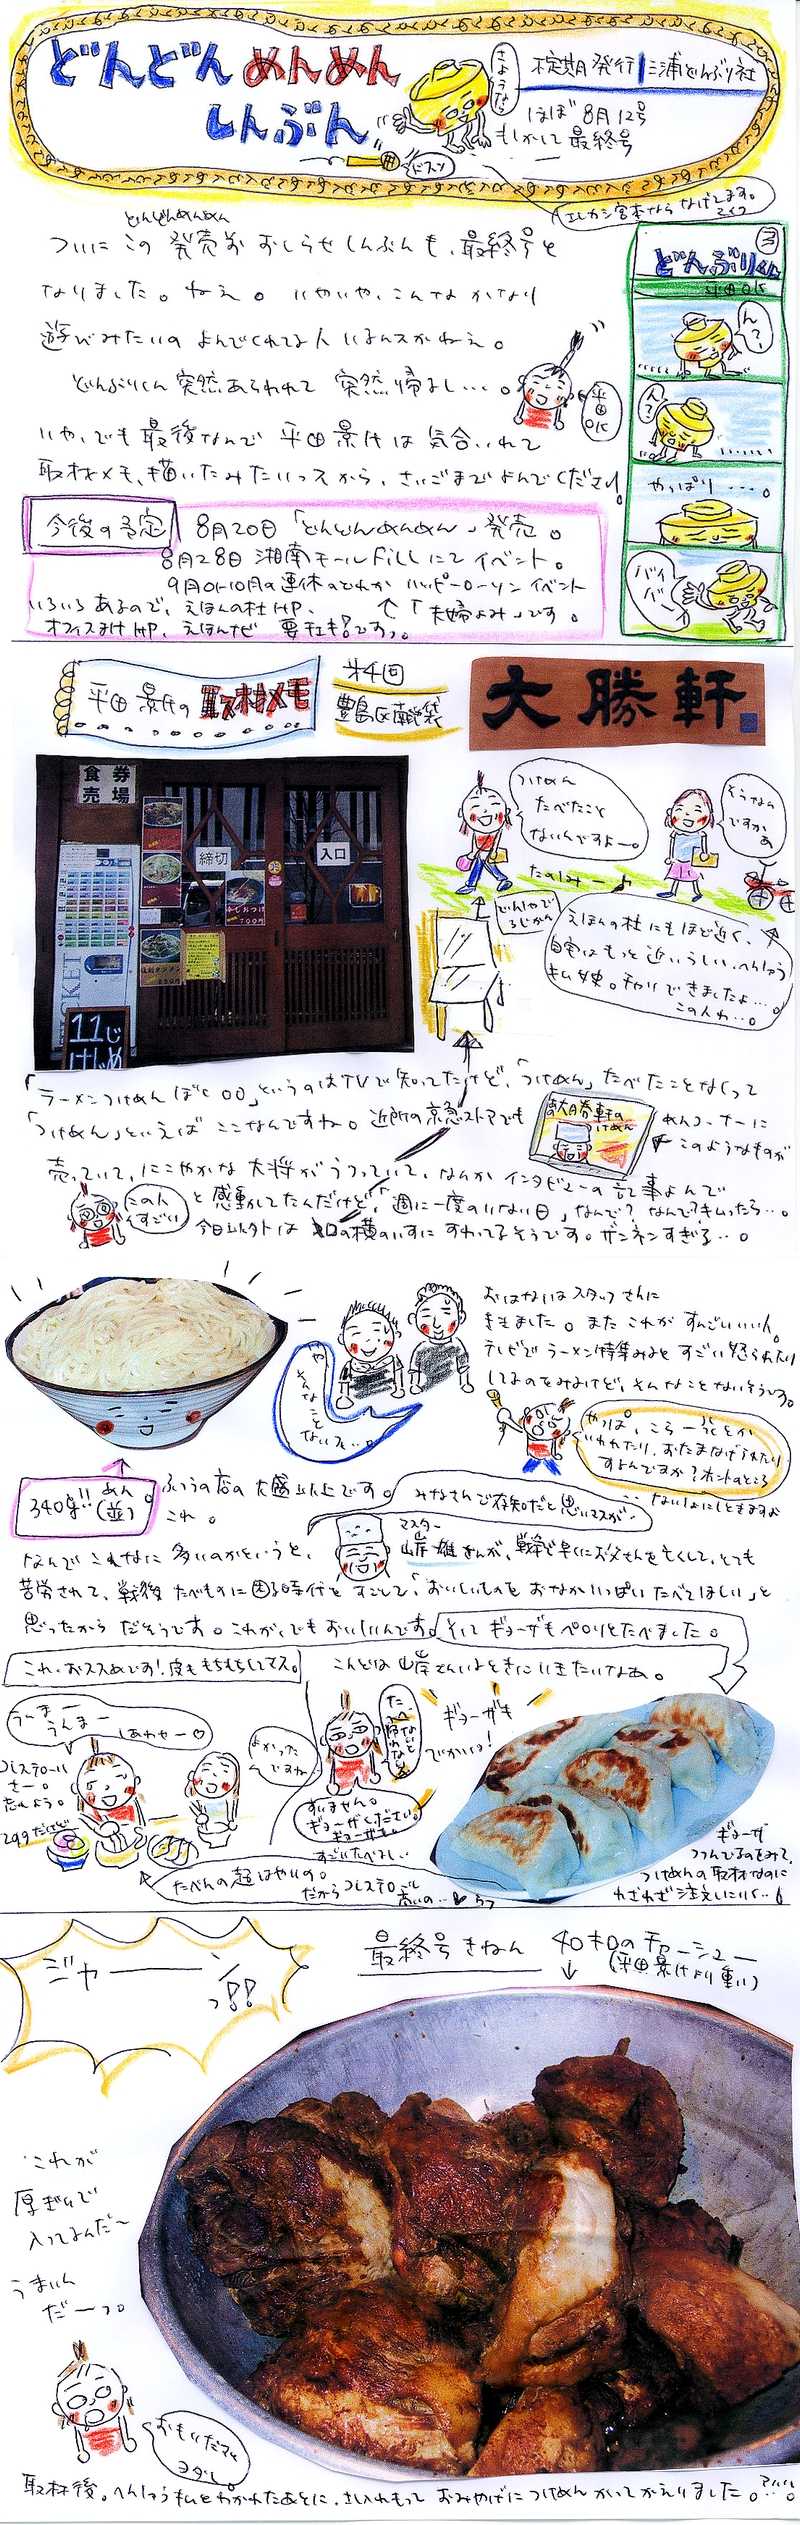 どんどんめんめん
しんぶん
さようなら
不定期発行 三浦どんぶり社
ほぼ8月12号
もしかして最終号
ドスン
エレカシ宮本ならなげてます。
マイク
どんどんめんめん
ついにこの発売前おしらせしんぶんも、最終号と
なりました。ねえ。いやいや、こんなかなり
遊びみたいのよんでくれてる人いるんスかねえ。
どんぶりくん突然あらわれて突然帰るし…。
平田OK
いや、でも最後なんで平田景は気合いれて
取材メモ、描いたみたいっスから、さいごまでよんでください!
今後の予定
8月20日「どんどんめんめん」発売。
8月28日湘南モールFillにてイベント。
9月か10月の連休のどれかハッピーローソンイベント
いろいろあるので、えほんの杜HP、
↑「夫婦よみ」です。
オフィスまけHP、えほんナビ 要チェキ!ですっ。
3
どんぶりくん
平田OK
ん?
ん?
やっぱり……。
バイバーイ
平田景の取材メモ
第4回
豊島区南池袋
大勝軒
食券
売場
締切
入口
700円
TICKET
11じ
はじめ
つけめん
たべたこと
ないんですよー。
そうなん
ですかぁ
たのしみー♪
でんしゃで
ろじかん
えほんの杜にもほど近く、
自宅はもっと近いらしい、へんしゅう
キム嬢。チャリできましたよ…。
この人わ…。
「ラーメンつけめんぼく〇〇」というのはTVで知ってたけど、「つけめん」たべたことなくって
「つけめん」といえばここなんですね。近所の京急ストアでも
大勝軒の
つけめん
めんコーナーに
このようなものが
売っていて、にこやかな大将がうつっていて、なんかインタビューの記事よんで
この人
すごい
と感動してたんだけど、「週に一度のいない日」なんで?なんで?キムったら…。
今日以外は入口の横のいすにすわってるそうです。ザンネンすぎる…。
おはなしはスタッフさんに
ききました。またこれがすんごいいい人。
テレビでラーメン特集みるとすごい怒られたり
してるのをみるけど、そんなことないそうです。
や、
そんなこと
ないス…。
やっぱ、こらー!とか
いわれたり、おたまなげられたり
するんですか?ホントのところ
…ないしょにしときますよ
340g!! めん(並)。
ふつうの店の大盛以上です。
これ。
みなさんご存知だと思いマスが…
なんでこれなに多いのかというと、
マスター
山岸一雄さんが、戦争で早くにお父さんを亡くして、とても
苦労されて、戦後たべものに困る時代をすごして、「おいしいものをおなかいっぱいたべてほしい」と
思ったからだそうです。これが、でもおいしいんです。そしてギョーザもペロリとたべました。
これ、おススめです!皮ももちもちしてマス。
こんどは山岸さんいるときにいきたいなぁ。
うーまー
うんまー
しあわせー♡
コレステロール
さー。
忘れよう。
299だけど
よかった
ですねー
すいません。
ギョーザください。
ギョーザも。
すごいたべるし…
ギョーザも
でかいっ!
たべんの超はやいの。
だからコレステロール
高いの…♥ウフ
ギョーザ
つつんでるのをみて、
つけめんの取材なのに
わざわざ注文しにいく…
ジャーーンっ!!
最終号きねん
40キロのチャーシュー
(平田景はより重い)
これが
厚ぎりで
入ってるんだ〜
うまいん
だーっ。
おもいだすと
ヨダレ。
取材後。へんしゅうキムとわかれたあとに、さいふもっておみやげにつけめんかってかえりました。アハハ…。